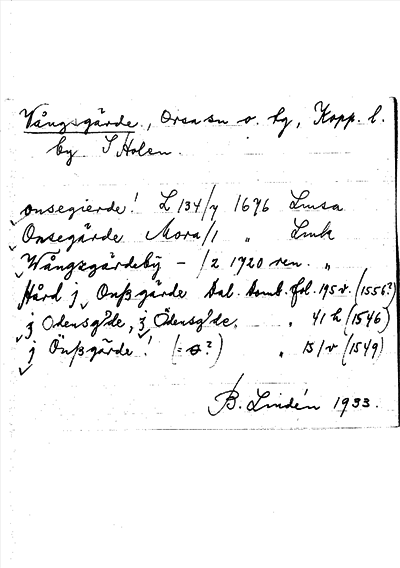 Vångsgärde, Orsa sn o. hg, Kopp. l.
by S Holen.
onsegierde! L 134/7 1676 Lmsa
Onsegärde Mora/1 " Lmk
Wångsgärdebÿ - /2 1720 ren. "
Hård j Onßgärde Dal. Domb. fol. 195 v. (1556?)
j Odensg?de, j Ödensg?de. " 41 h (1546)
j Önßgärde! (= o?) " 15/v (1549)
B. Lindén 1933.